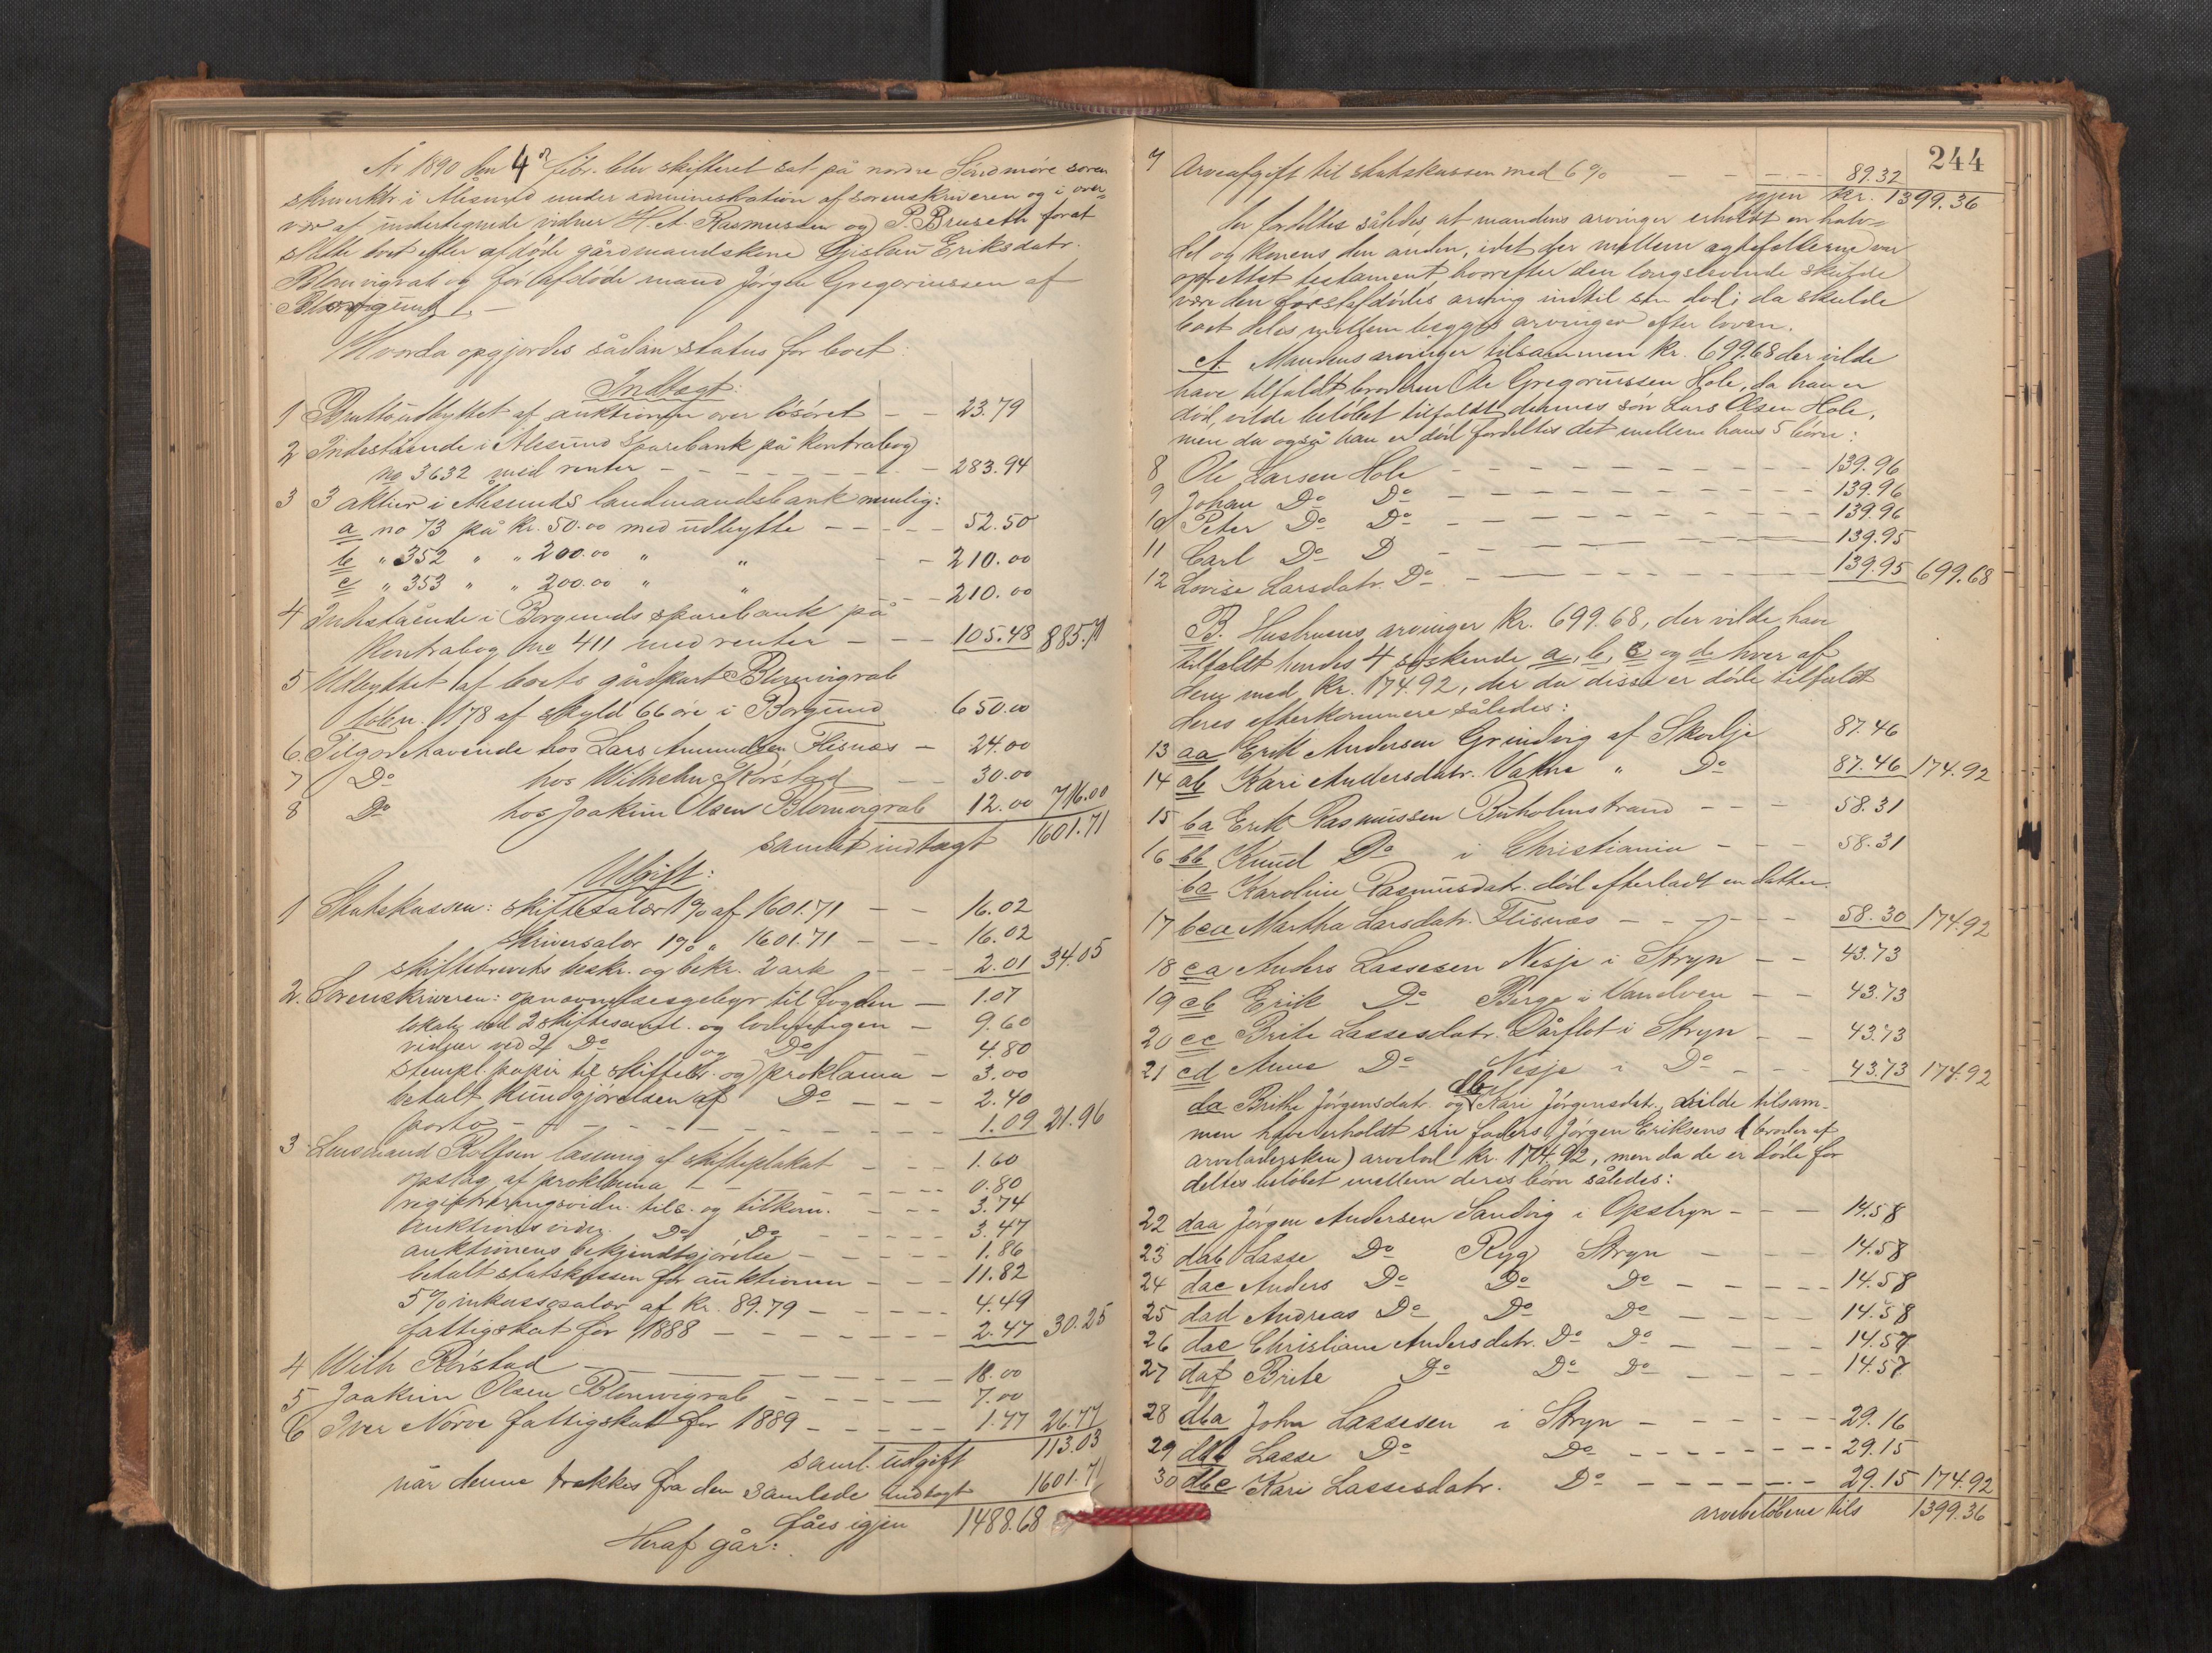 År 1890 den 4de febr. blev skifteret sat på nordre Söndmöre soren
skriverktr. i Ålesund under administration af sorenskriveren og i over-
vær af undertegnede vidner H. A. Rasmussen og P. Bruseth forat
slutte boet efter afdöde gårdmandskone Gjislau Eriksdatr.
Blomvigvab og förafdöde mand Jörgen Gregoriussen af
Borgund. –
Hvorda opgjordes sådan status for boet:
Indtægt:
1 Bruttoudbyttet af auktionen over lösöret – – 23.79
2 Indestående i Ålesund Sparebank på kontrabog
no 3632 med renter – – – 283.94
3 3 aktier i Ålesunds landmandsbank nemlig:
a no 73 på kr. 50.00 med udbytte – – – 52.50
b " 352 " " 200.00 " " – – 210.00
c " 353 " " 200.00 " " – – 210.00
4 Indestående i Borgunds sparebank på
Kontrabog no 411 med renter – – – 105.48 885.71
5 Udbyttet af boets gårdpart Blomvigvab
löbn. 178 af skyld 66 öre i Borgund 650.00
6. Tilgodehavende hos Lars Amundsen Flisnæs – 24.00
7 Do hos Wilhelm Rörstad – – 30.00
8 Do hos Joakim Olsen Blomvigvab 12.00 716.00
samlet indtægt 1601.71
Udgift:
1 Statskassen: skiftesalær 1% af 1601.71 – – 16.02
skriversalær 1% " 1601.71 – – – 16.02
skiftebrevets beskr. og bekr. 2 ark – – 2.01 34.05
2. Sorenskriveren: opnævnelsesgebyr til fogden – 1.07
lokale ved 2 skiftesaml. og – 9.60
vidner ved 2 Do og Do – 4.80
stempl. papir til skiftebr. og proklama – 3.00
betalt kundgjörelsen af Do – – – 2.40
porto – – – 1.09 21.96
3 Lensmand Rolfsen læsning af skifteplakat – – – 1.60
opslag af proklama – – – 0.80
registreringsvidn. tils. og tilkom. – – – 3.74
auktionsvidn. Do Do – – – 3.47
auktionens bekjendtgjörelse – – – 1.86
betalt statskassen for auktionen – – – 11.82
5% inkassosalær af kr. 89.79 – – – 4.49
fattigskat for 1888 – – – 2.47 30.25
4 Wilh Rörstad – – – 18.00
5 Joakim Olsen Blomvigvab – – – 7.00
6 Iver Nörve fattigskat for 1889 – – – 1.77 26.77
saml. udgift 113.03
når denne trækkes fra den samlede indtægt 1601.71
fåes igjen 1488.68
Heraf går:
244
7 Arveafgift til statskassen med 6% – – – 89.32
igjen kr. 1399.36
der fordeltes således at mandens arvinger erholdt en halv-
del og konens den anden, idet der mellem ægtefolkene var
oprettet testament, hvorefter den længstlevende skulde
være den förstafdödes arving indtil sin död, da skulde
boet deles mellem begges arvinger efter loven.
A. Mandens arvinger tilsammen kr. 699.68 der vilde
have tilfaldt broderen Ole Gregoriussen Hole, da han er
död, vilde belöbet tilfaldt dennes sön Lars Olsen Hole,
men da også han er död fordeltes det mellem hans 5 börn:
8 Ole Larsen Hole – – – 139.96
9 Johan Do Do – – – 139.96
10 Peter Do Do – – – 139.96
11 Carl Do D – – – 139.95
12 Lovise Larsdatr. Do – – – 139.95 699.68
B. Hustruens arvinger kr. 699.68, der vilde have
tilfaldt hendes 4 söskende a, b, c og d hver af
dem med kr. 174.92, der da disse er döde tilfaldt
deres efterkommere således:
13 aa Erik Andersen Grindvig af Skodje 87.46
14 ab Kari Andersdatr. Vatne " Do 87.46 174.92
15 ba Erik Rasmussen Buholmstrand – – – 58.31
16 bb Knud Do i Christiania – – – 58.31
bc Karoline Rasmusdatr. död efterladt en datter.
17 bca Martha Larsdatr. Flisnæs – – – 58.30 174.92
18 ca Anders Lassesen Nesje i Stryn – – 43.73
19 cb Erik Do Berge i Vandven – – 43.73
20 cc Brite Lassesdatr. Dårflot i Stryn – – 43.73
21 cd Anne Do Nesje i Do – – 43.73 174.92
da Brithe Jörgensdatr. og db Kari Jörgensdatr., vilde tilsam-
men have erholdt sin faders Jörgen Eriksens (broder af
arveladersken) arvelod kr. 174.92, men da de er döde for
deltes belöbet mellem deres börn således:
22 daa Jörgen Andersen Sandvig i Opstryn – – – 14.58
23 dab Lasse Do Ryg Stryn – – – 14.58
24 dac Anders Do Do Do – – – 14.58
25 dad Andreas Do Do Do – – – 14.58
26 dae Christiane Andersdatr. Do Do – – – 14.57
27 daf Brite Do Do Do – – – 14.57
28 dba John Lassesen i Stryn – – – 29.16
29 dbb Lasse Do Do – – – 29.15
30 dbc Kari Lassesdatr. Do – – – 29.15 174.92
arvebelöbene tils 1399.36